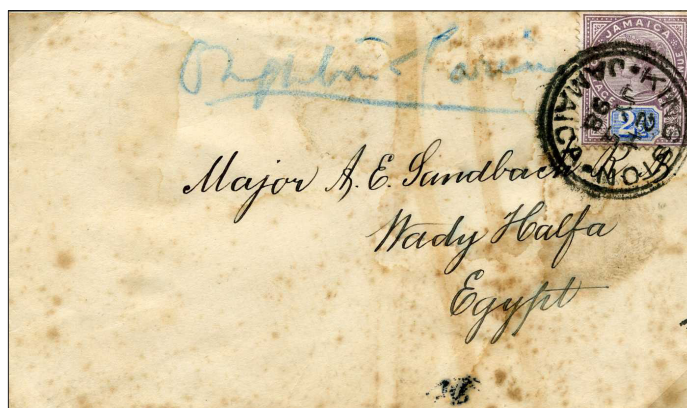 JAMAICA
2½
KINGSTON · JAMAICA
98
Major A. E. Sandbach R.E.
Wady Halfa
Egypt